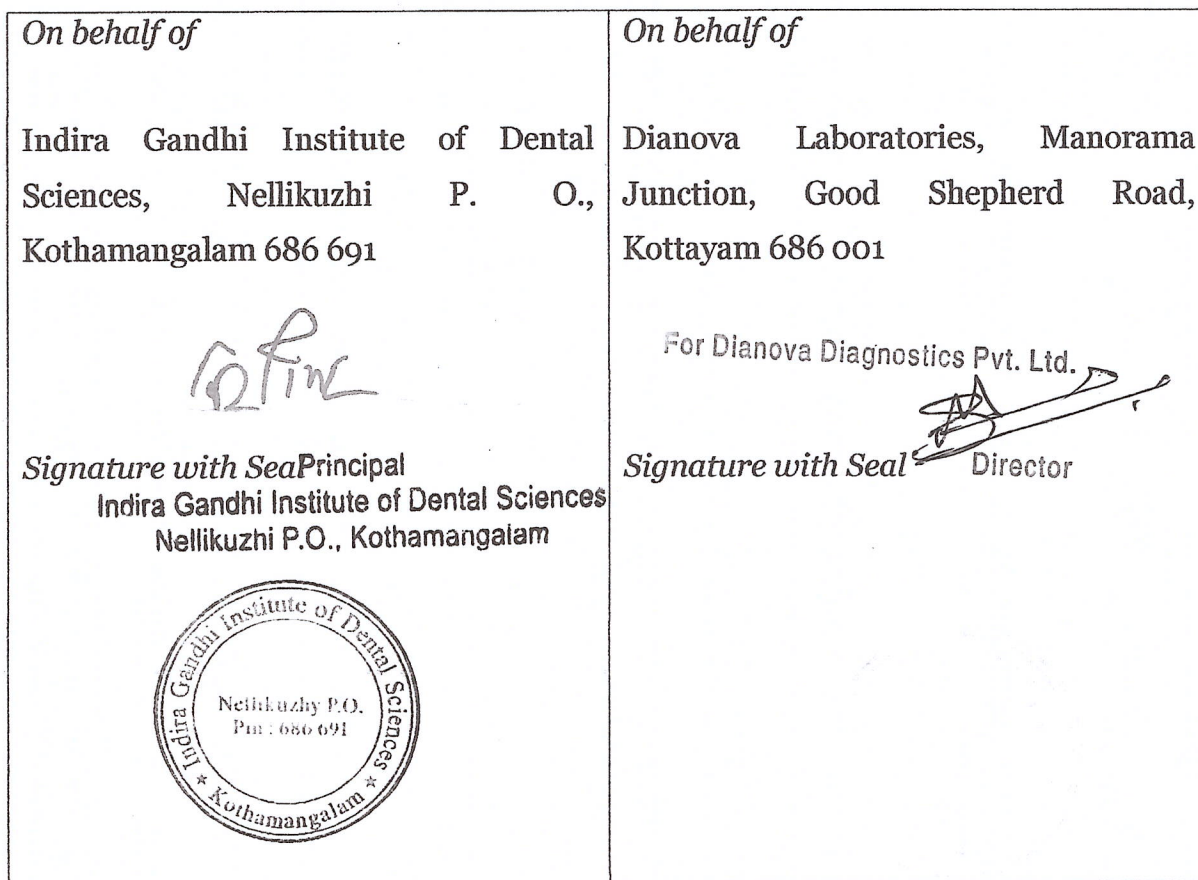 On behalf of
Indira Gandhi Institute of Dental
Sciences, Nellikuzhi P. O.,
Kothamangalam 686 691
Signature with Seal
Principal
Indira Gandhi Institute of Dental Sciences
Nellikuzhi P.O., Kothamangalam
Indira Gandhi Institute of Dental Sciences
* Kothamangalam *
Nellikuzhy P.O.
Pin : 686 691
On behalf of
Dianova Laboratories, Manorama
Junction, Good Shepherd Road,
Kottayam 686 001
For Dianova Diagnostics Pvt. Ltd.
Signature with Seal
Director